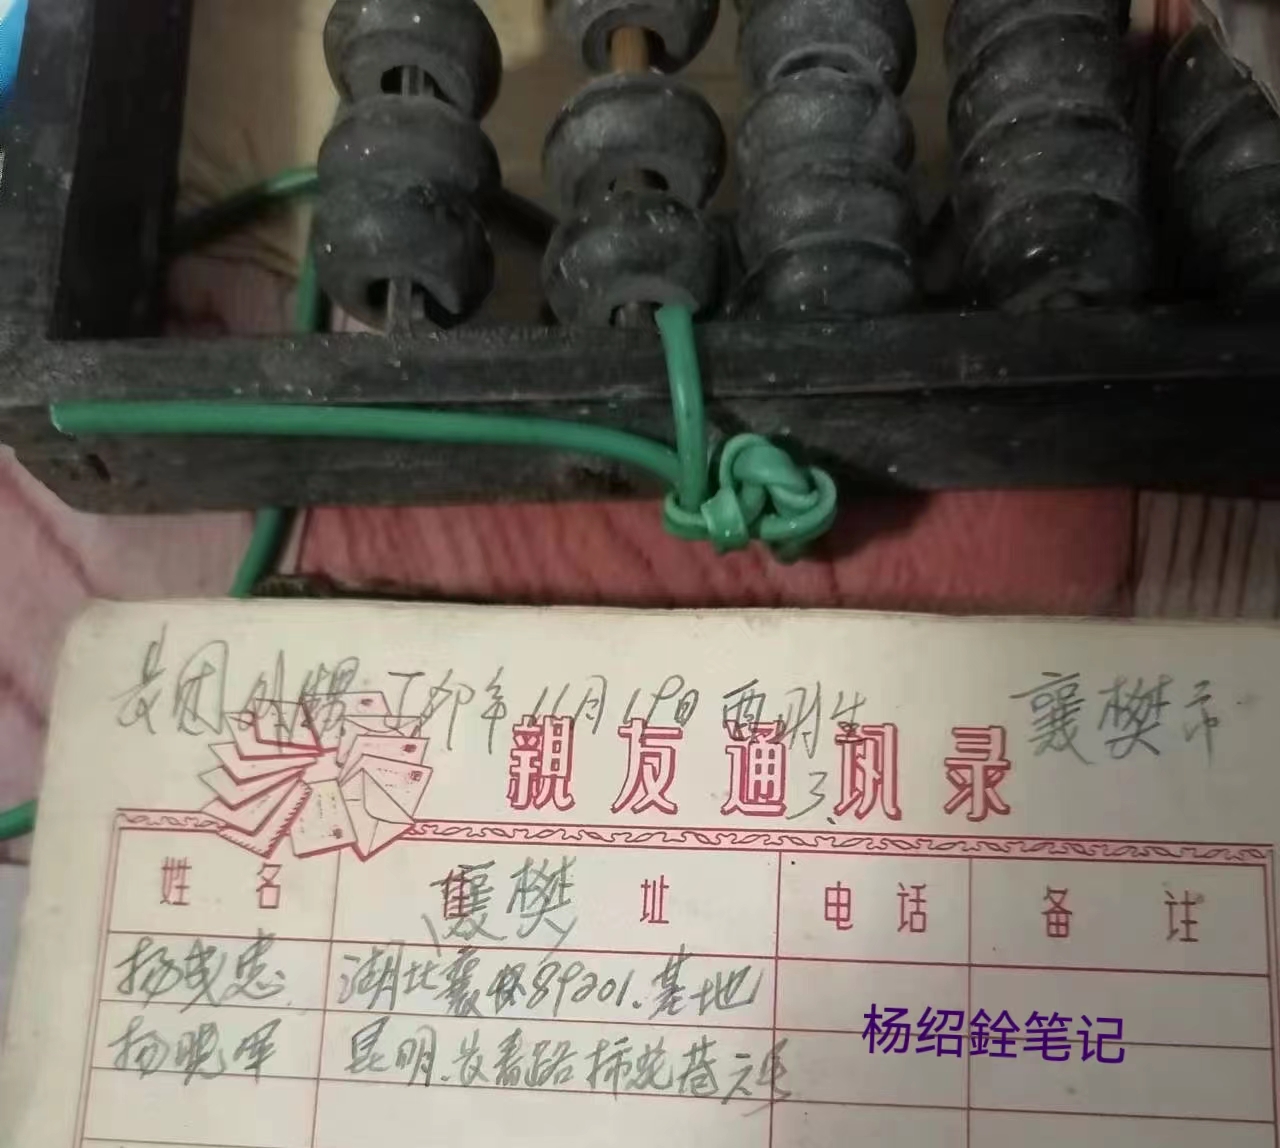 团 外甥 丁卯年11月19日 酉时生 襄樊市
親友通讯录
姓 名 襄樊 址 电 话 备 注
杨成忠 湖北襄樊89201.基地
杨晓军 昆明.长春路柿花巷
杨绍銓笔记